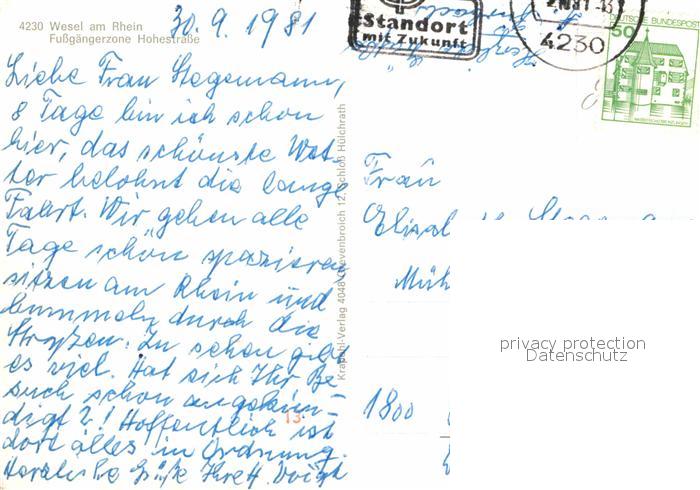 4230 Wesel am Rhein
Fußgängerzone Hohestraße
30.9.1981
Liebe Frau Stegemann,
8 Tage bin ich schon
hier, das schönste Wet-
ter belohnt die lange
Fahrt. Wir gehen alle
Tage schön spazieren
sitzen am Rhein und
bummeln durch die
Straßen. Zu sehen gibt
es viel. Hat sich Ihr Be-
such schon angekün-
digt?! Hoffentlich ist
dort alles in Ordnung.
Herzliche Grüße Ihre H. Voigt
13
Krapohl-Verlag 4048 Grevenbroich 12, Schloß Hülchrath
Standort
mit Zukunft
4230
DEUTSCHE BUNDESPOST
50
Frau
Müh
1800
privacy protection
Datenschutz